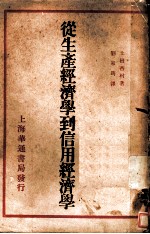 土田杏村著
從生產經濟學到信用經濟學
上海華通書局發行